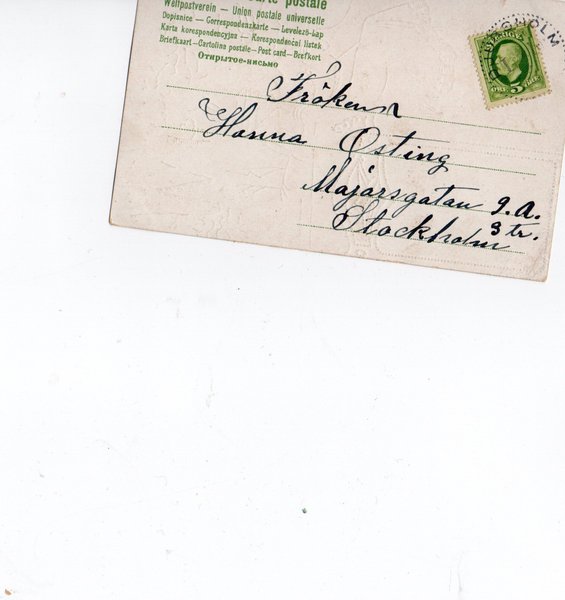 Carte postale
Weltpostverein — Union postale universelle
Dopisnice — Correspondenzkarte — Levelező-Lap
Karta korespondencyjna — Korespondenční lístek
Briefkaart—Cartolina postale—Post card—Brefkort
Открытое-письмо
SVERIGE
5
ÖRE ÖRE
Fröken
Hanna Osting
Majorsgatan 9.A.
3 tr.
Stockholm